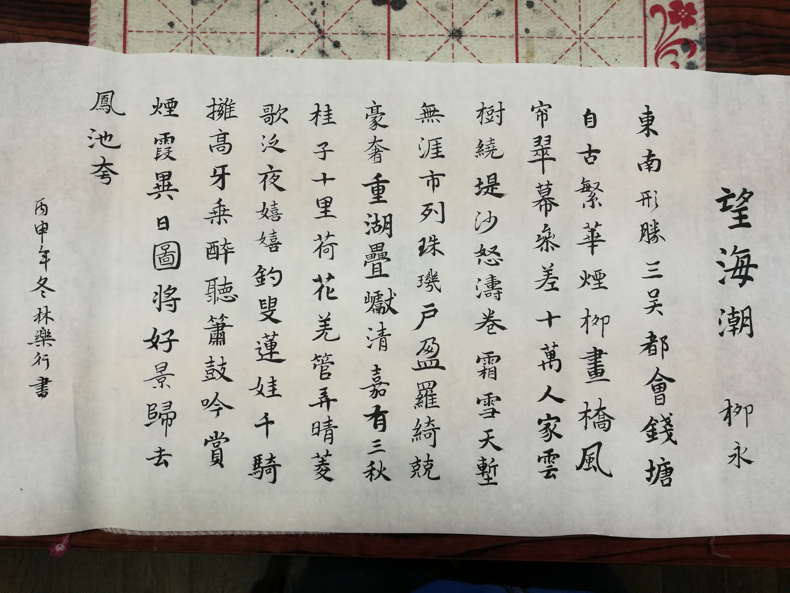 望海潮
柳永
東南形勝三吴都會錢塘
自古繁華煙柳畫橋風
帘翠幕叅差十萬人家雲
樹繞堤沙怒濤卷霜雪天塹
無涯市列珠璣户盈羅綺兢
豪奢重湖疊巘清嘉有三秋
桂子十里荷花羌管弄晴菱
歌泛夜嬉嬉釣叟蓮娃千騎
擁高牙乘醉聽簫鼓吟賞
煙霞異日圖將好景歸去
鳳池夸
丙申年冬林樂行書